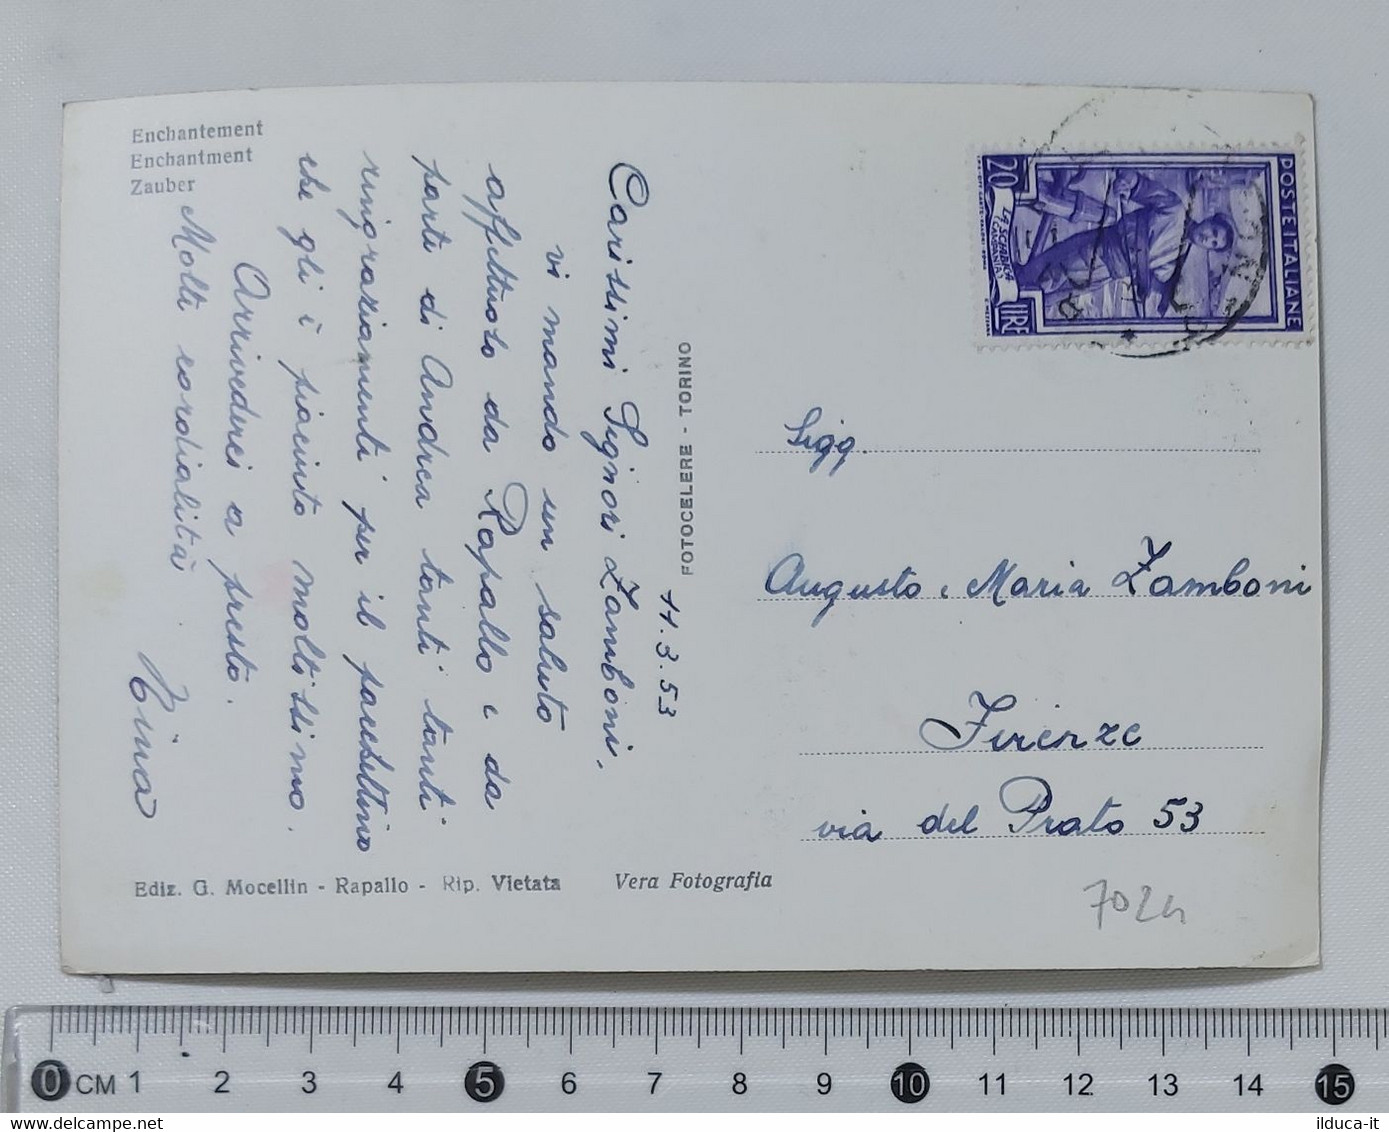 Enchantement
Enchantment
Zauber
11.3.53
Carissimi Signori Zamboni,
vi mando un saluto
affettuoso da Rapallo e da
parte di Andrea tanti tanti
ringraziamenti per il pacchettino
che gli è piaciuto moltissimo.
Arrivederci a presto.
Molte cordialità
Tina
FOTOCELERE - TORINO
Ediz. G. Mocellin - Rapallo - Rip. Vietata
Vera Fotografia
POSTE ITALIANE
20
LA SCIABICA
(CAMPANIA)
LIRE
Sigg.
Augusto e Maria Zamboni
Firenze
via del Prato 53
7024
0 CM 1 2 3 4 5 6 7 8 9 10 11 12 13 14 15
www.delcampe.net
ilduca-it